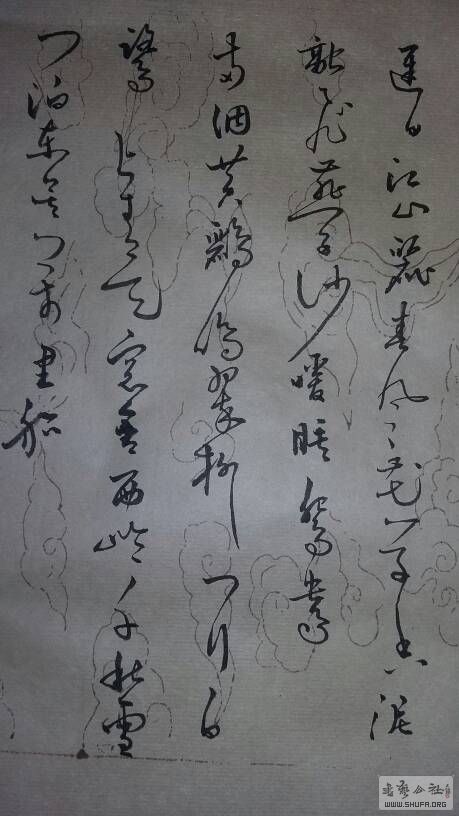 遲日江山麗春風花草香泥
融飛燕子沙暖睡鴛鴦
兩個黃鸝鳴翠柳一行白
鷺上青天窗含西岭千秋雪
门泊東吴万里船
書藝公社
WWW.SHUFA.ORG